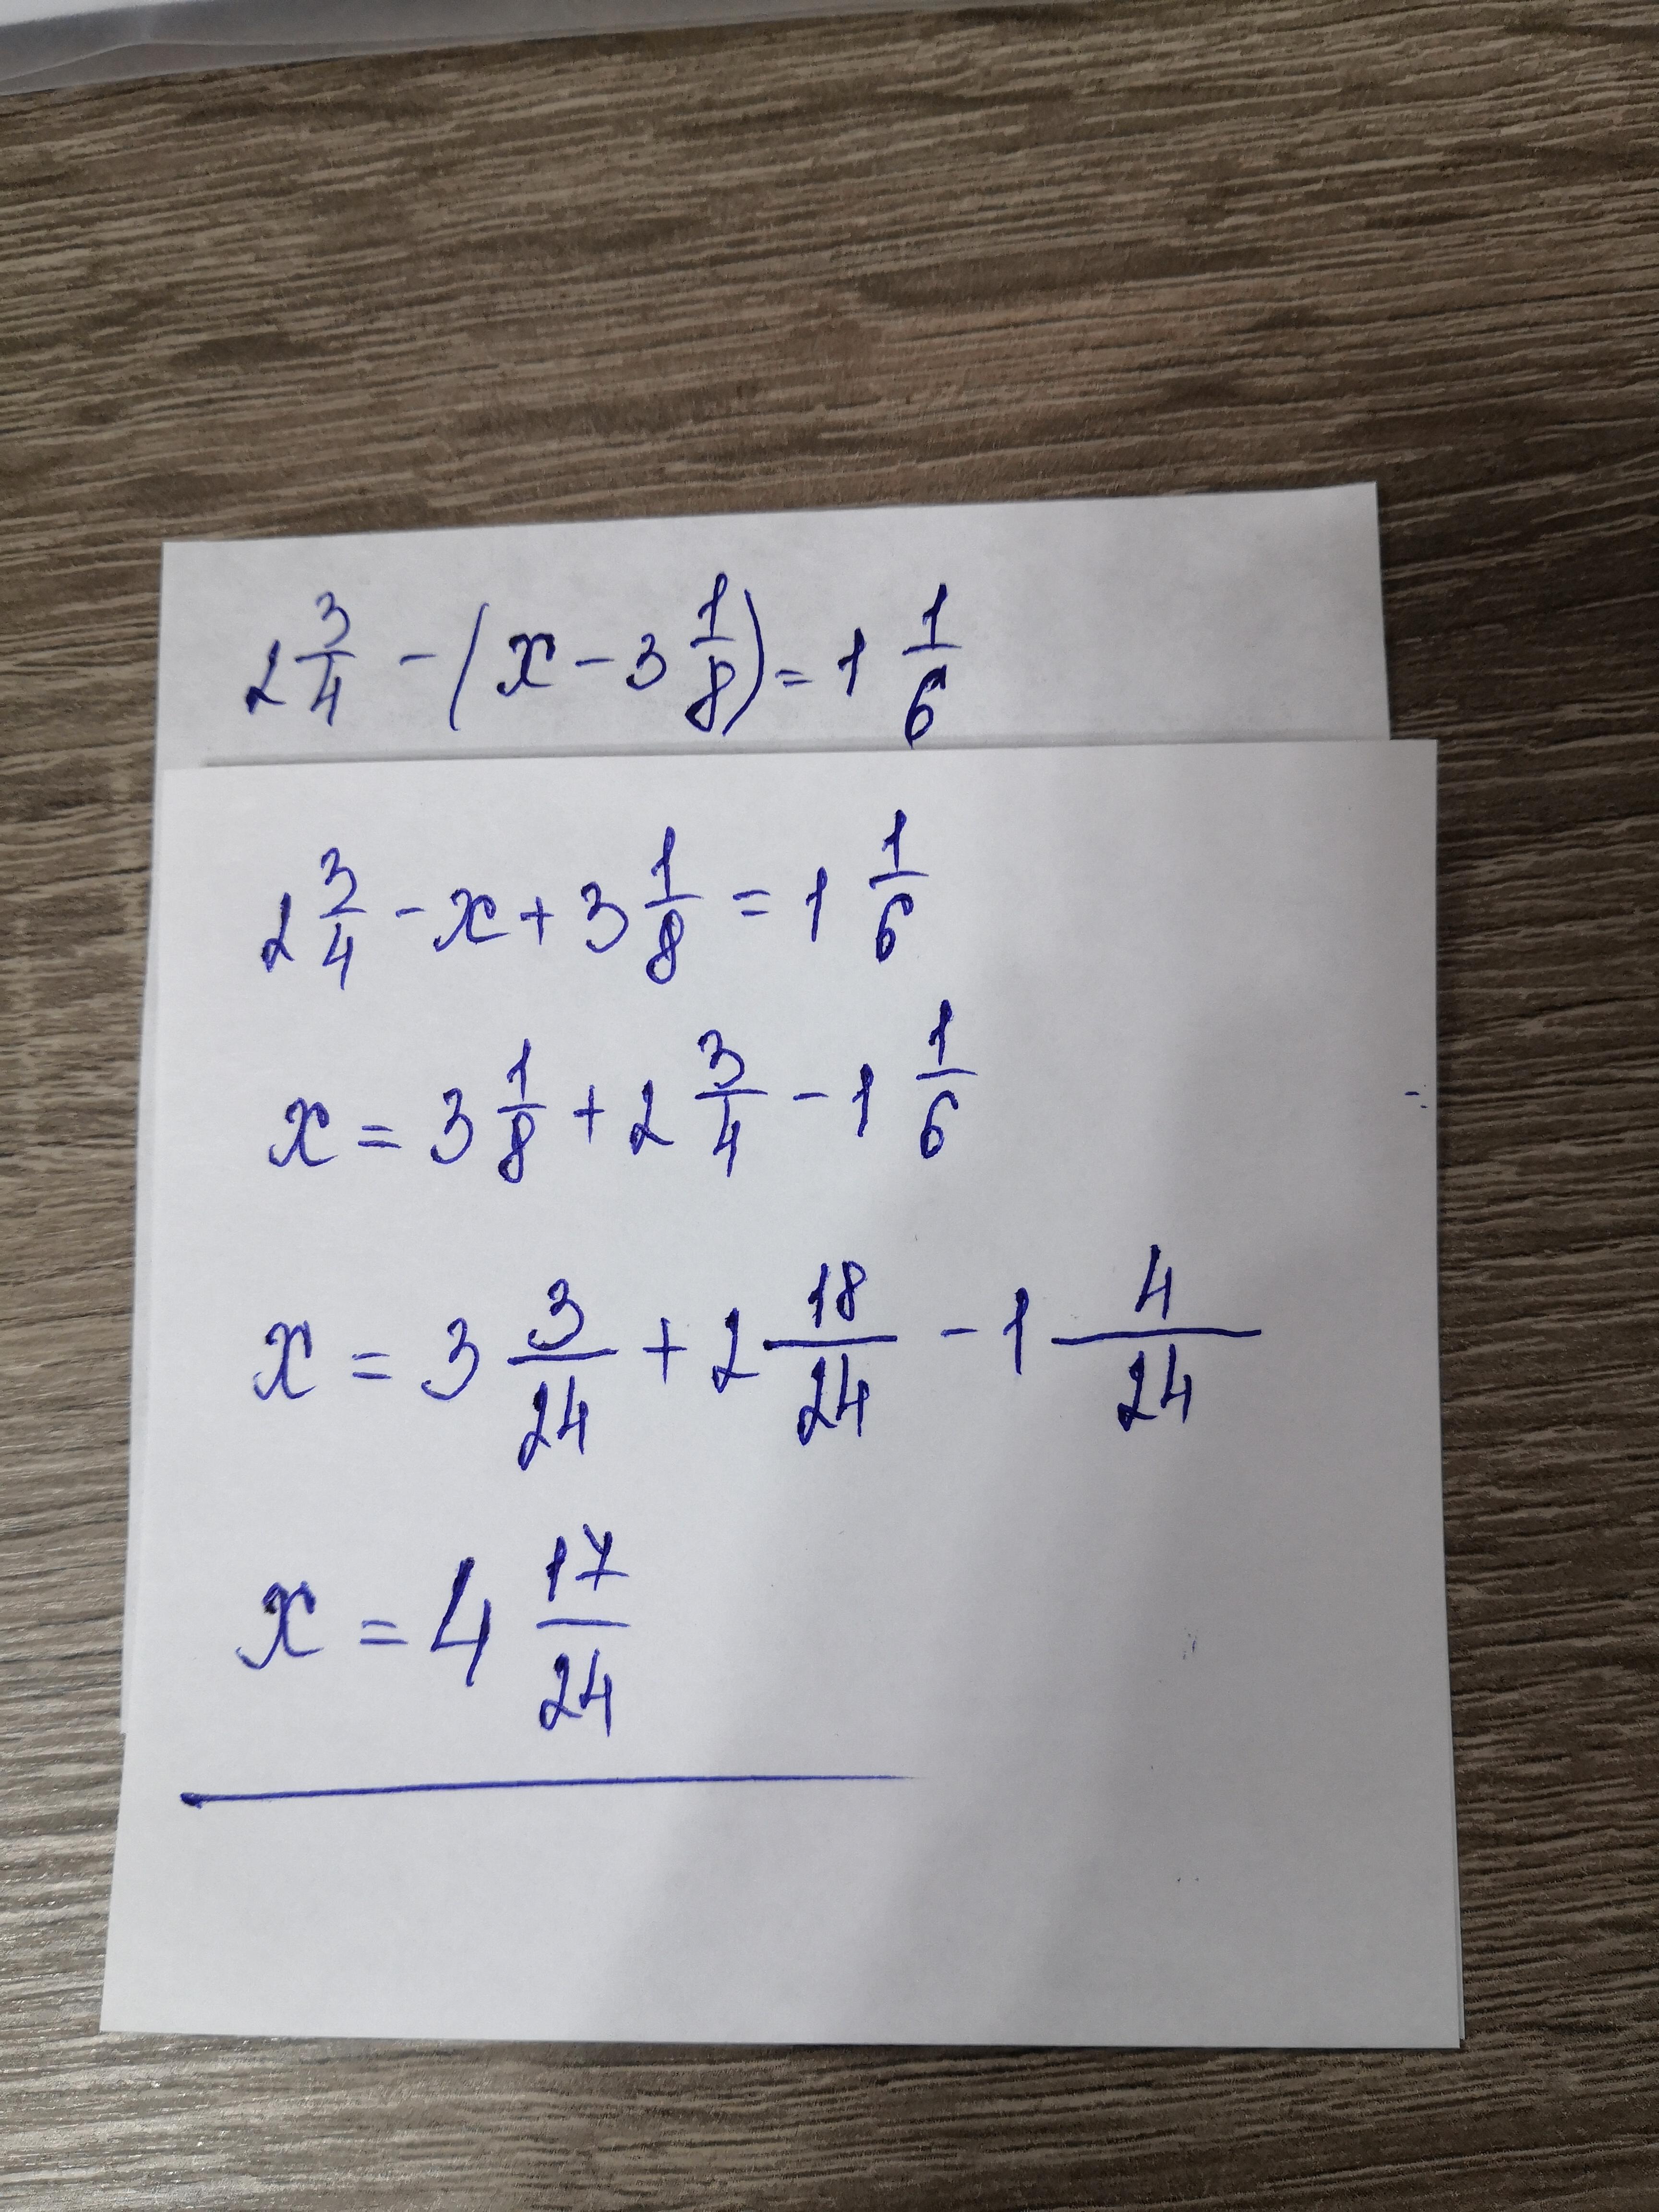 2 3/4 - (x - 3 1/8) = 1 1/6
2 3/4 - x + 3 1/8 = 1 1/6
x = 3 1/8 + 2 3/4 - 1 1/6
x = 3 3/24 + 2 18/24 - 1 4/24
x = 4 17/24